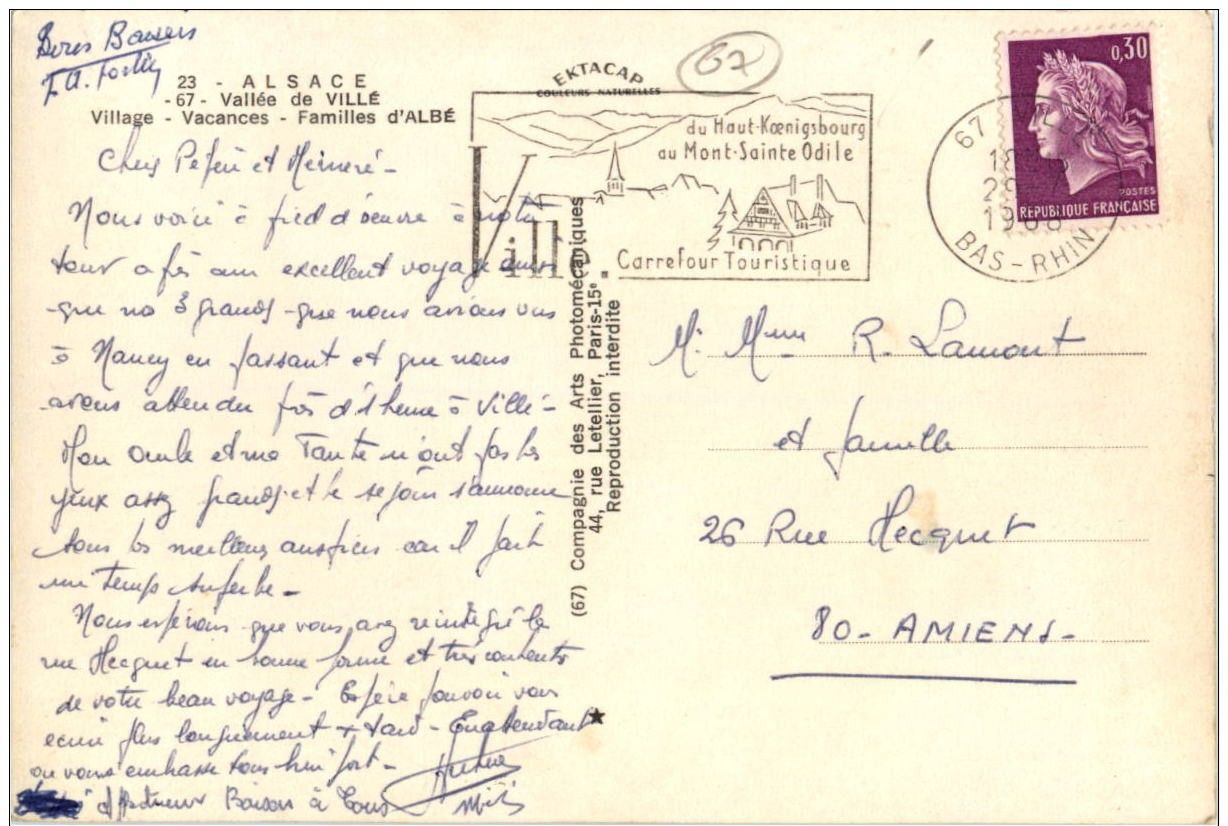 Bons Baisers
23 - ALSACE
-67- Vallée de VILLÉ
Village - Vacances - Familles d'ALBÉ
EKTACAP
COULEURS NATURELLES
67
du Haut-Kœnigsbourg
au Mont-Sainte Odile
Villé
Carrefour Touristique
0,30
POSTES
RÉPUBLIQUE FRANÇAISE
67
BAS-RHIN
Chers Pépère et Mémère -
Nous voici à pied d'œuvre à notre
tour après un excellent voyage ainsi
que nos 3 grands que nous avions vus
à Nancy en passant et que nous
avons attendu près d'1 heure à Villé -
Mon Oncle et ma Tante n'ont pas les
yeux assez grands et le séjour s'annonce
sous les meilleurs auspices car il fait
un temps superbe -
Nous espérons que vous avez réintégré la
rue Hecquet en bonne forme et très contents
de votre beau voyage - Espère pouvoir vous
écrire plus longuement + tard - En attendant
on vous embrasse tous bien fort -
Baisers à tous
(67) Compagnie des Arts Photomécaniques
44, rue Letellier, Paris-15e
Reproduction interdite
M. Mme R. Lamont
et famille
26 Rue Hecquet
80 - AMIENS -